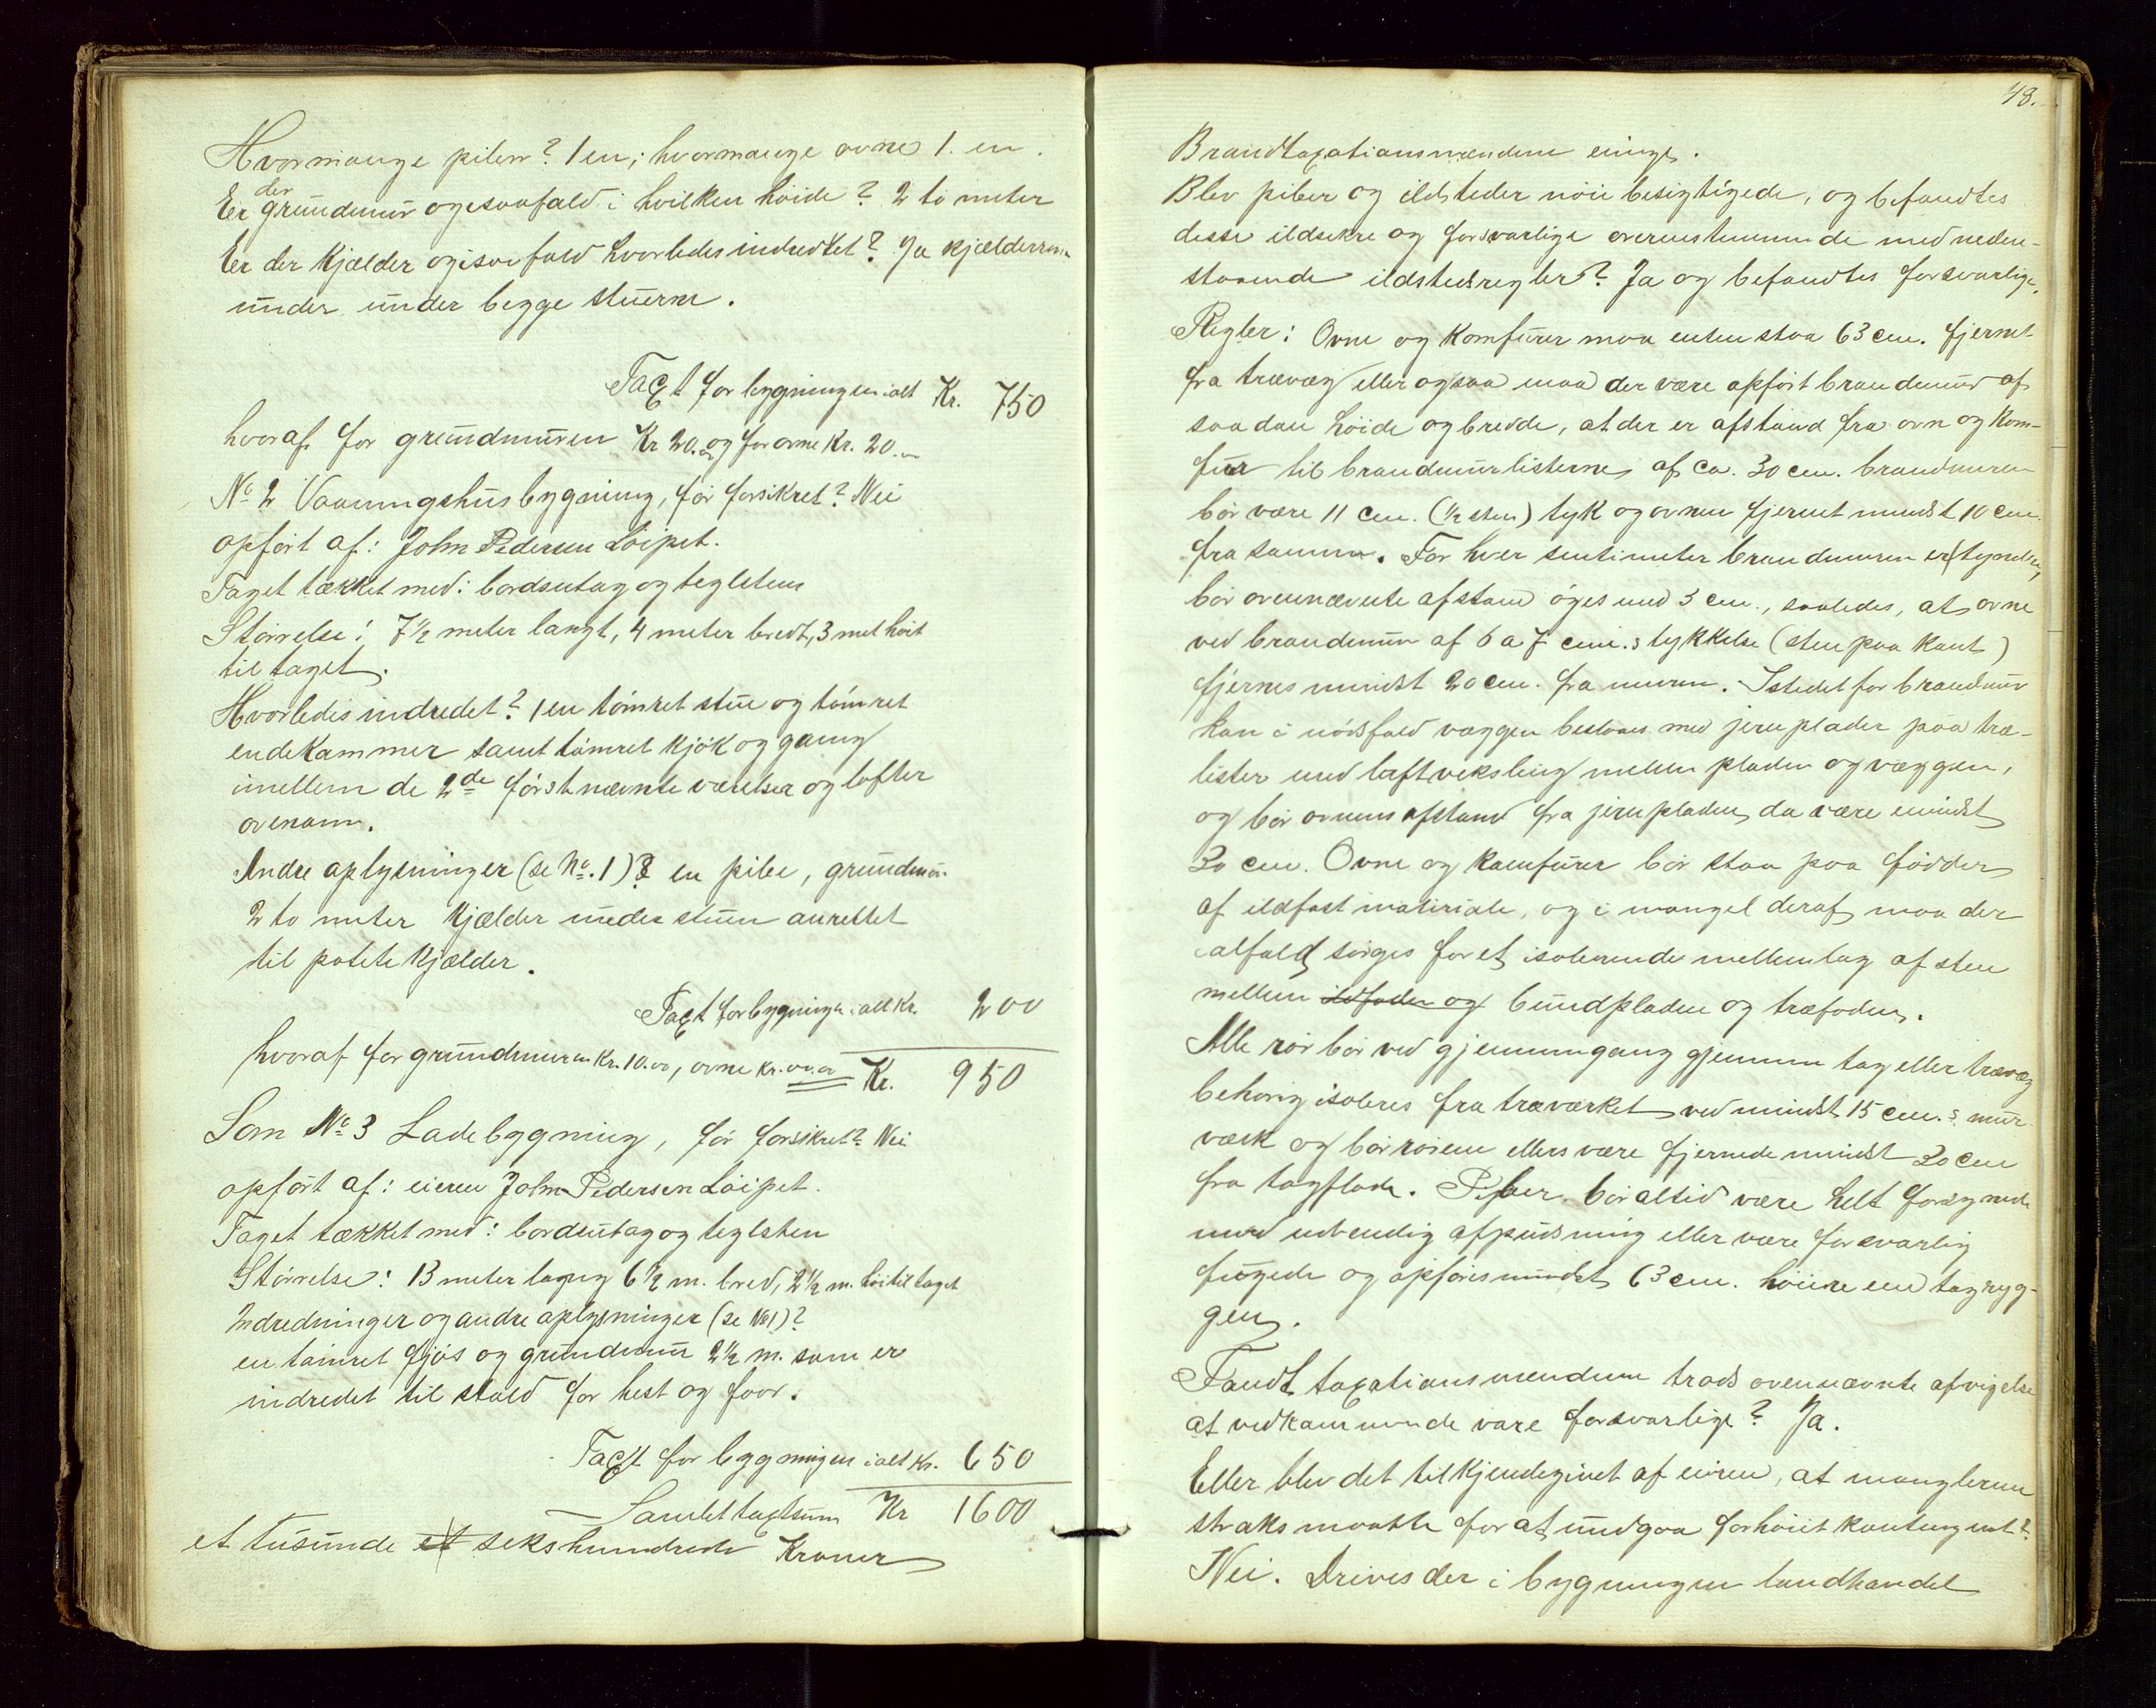 Hvormange piber? 1 en; hvormange ovne 1. en.
Er der grundmur ogisaafald i hvilken höide? 2 to meter
Er der Kjælder ogisaafald hvorledes indredtet? Ja kjælderrum
under under begge stuerne.
Taxt for bygningen ialt Kr. 750
hvoraf for grundmuren Kr 20.00 og for ovne Kr. 20.00
No 2 Vaaningshusbygning, för forsikret? Nei
opfört af: John Pedersen Löipet.
Taget tækket med: bordsutag og teglsten
Störrelse: 7 1/2 meter langt, 4 meter bredt, 3 met höit
til taget.
Hvorledes indredet? 1 en tömret stue og tömret
endekammer samt tömret kjök og gang
imellem de 2de förstnævnte værelser og lofter
ovenom.
Andre oplysninger (se No. 1)? en pibe, grundmur
2 to meter Kjælder under stuen anrettet
til potetekjælder.
Taxt for bygningen ialt Kr. 200
hvoraf for grundmuren Kr. 10.00, ovne Kr. 00.00 Kr. 950
Som No 3 Ladebygning, för forsikret? Nei
opfört af: eieren John Pedersen Löipet.
Taget tækket med: bordsutag og teglsten
Störrelse: 13 meter lang 6 1/2 m. bred, 2 1/2 m. höi til taget
Indredninger og andre oplysninger (se No 1)?
en tömret fjös og grundmur 2 1/2 m. som er
indredet til stald for hest og foor.
Taxt for byggningen ialt Kr. 650
Samlet taxtsum Kr 1600
et tusunde et sekshundrede Kroner
48.
Brandtaxationsmændene enige.
Blev piber og ildsteder nöie besigtigede, og befandtes
disse ildsikre og forsvarlige overenstemmende med neden-
staaende ildstedsregler? Ja og befandtes forsvarlige.
Regler: Ovne og Komfurer maa enten staa 63 cm. fjernet
fra trævæg eller ogsaa maa der være opfört brandmur af
saadan höide og bredde, at der er afstand fra ovn og kom-
fur til brandmurlisterne af ca. 30 cm. brandmuren
bör være 11 cm. (1/2 sten) tyk og ovnen fjernet mindst 10 cm.
fra samme. For hver sentimeter brandmuren er tyndere,
bör ovennævnte afstand öges med 3 cm., saaledes, at ovne
ved brandmur af 6 a 7 cm.s tykkelse (sten paa kant)
fjernes mindst 20 cm. fra muren. Istedet for brandmur
kan i nödsfald væggen beslaaes med jernplader paa træ-
lister med luftveksling mellem pladen og væggen,
og bör ovnens afstand fra jernpladen da være mindst
30 cm. Ovne og komfurer bör staa paa födder
af ildfast materiale, og i mangel deraf maa der
ialfald sörges for et isolerende mellemlag af sten
mellem ildfoden og bundpladen og træfoden.
Alle rör bör ved gjennemgang gjennem tag eller trævæg
behörig isoleres fra træværket ved mindst 15 cm.s mur-
værk og bör rörene ellers være fjernede mindst 30 cm
fra tagflade. Piber bör altid være helt forsynede
med udvendig afpudsning eller være forsvarlig
fugede og opföres mindst 63 cm. höiere end tagryg-
gen.
Fandt taxationsmændene trods ovennævnte afvigelse
at vedkommende vare forsvarlige? Ja.
Eller blev det tilkjendegivet af eieren, at manglerne
straks maatte for at undgaa forhöiet kontingent?
Nei. Drives der i bygningen landhandel